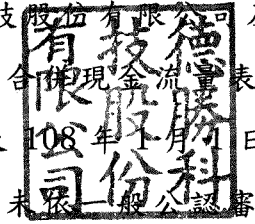 技股份有限公司及
合併現金流量表
108年1月1日
未依一般公認審
德勝科
技股份
有限公司